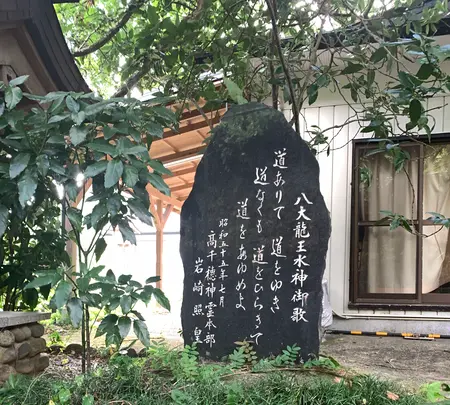 八大龍王水神御歌
道ありて　道をゆき
道なくも　道をひらきて
道をあゆめよ
昭和五十五年七月
高千穂神霊本部
岩崎照皇